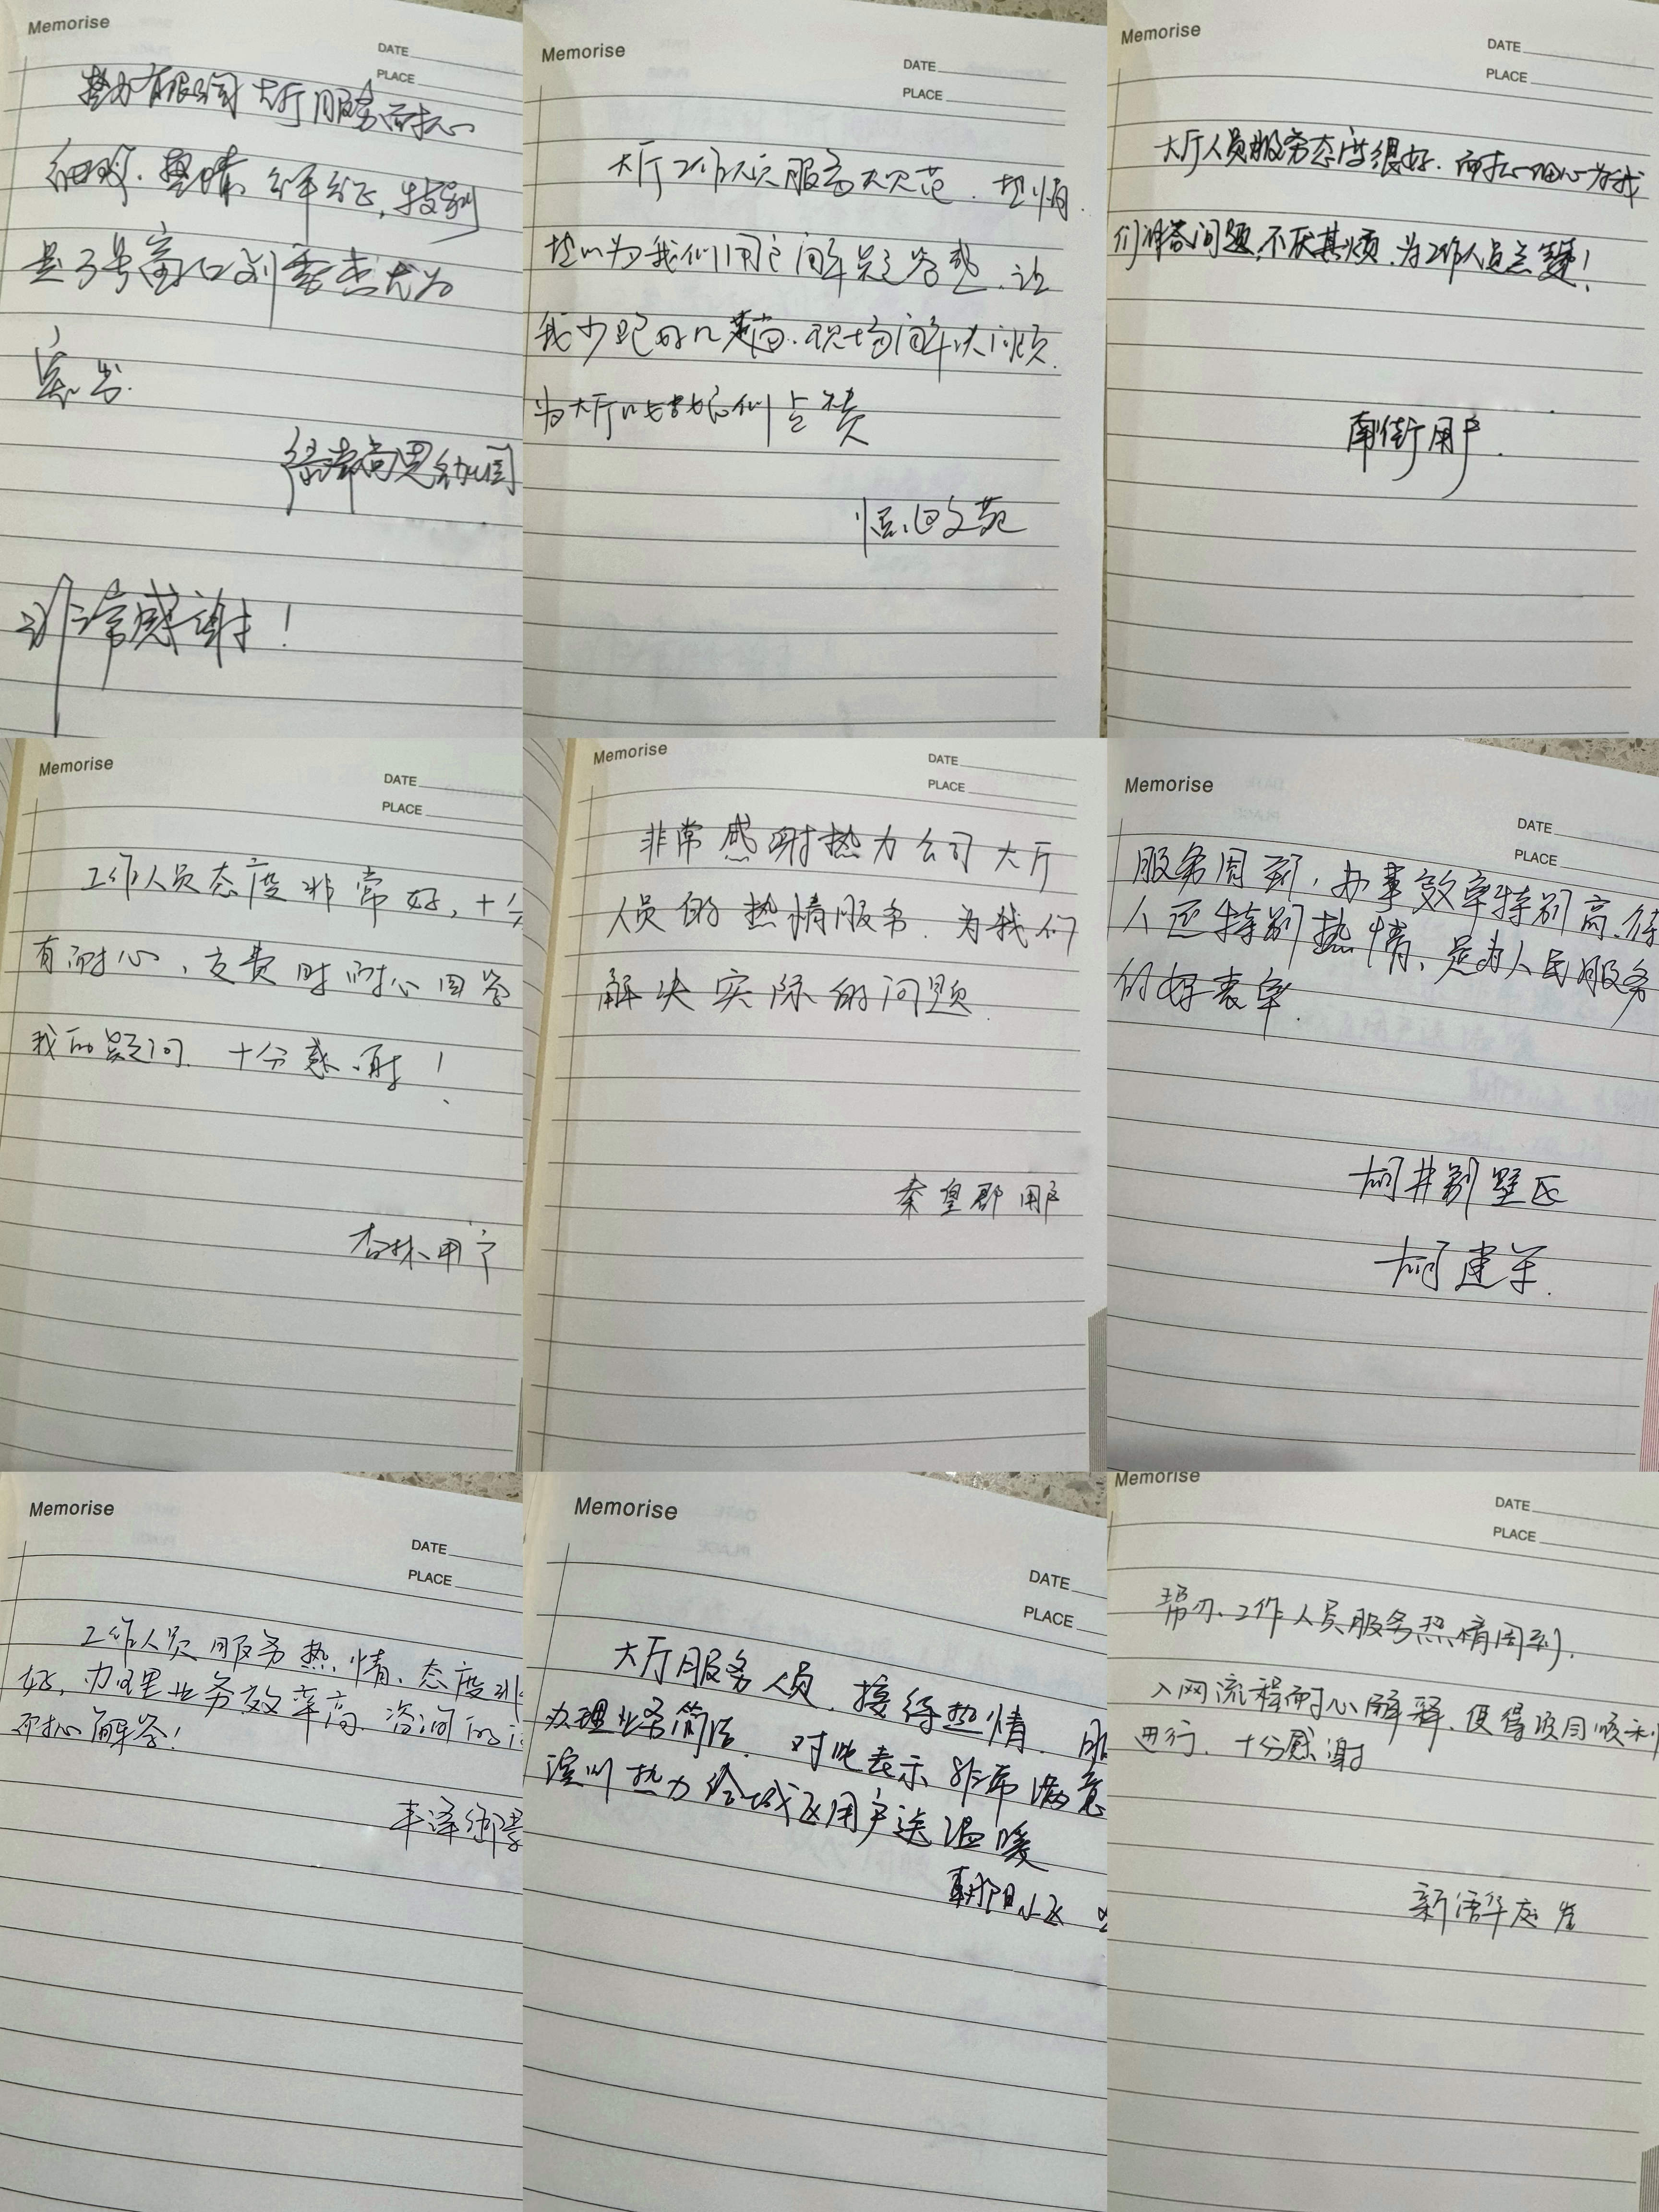 Memorise
DATE
PLACE
热力有限公司大厅服务耐心
细致、热情、公平公正,特别
是3号窗口刘
非常感谢!
Memorise
DATE
PLACE
大厅工作人员服务规范、热情、
为我们用户解疑答惑,让
我少跑好几趟,现场解决问题.
为大厅的们点赞
恒心文苑
Memorise
DATE
PLACE
大厅人员服务态度很好.耐心细心为我
们解答问题,不厌其烦,为工作人员点赞!
南街用户.
Memorise
DATE
PLACE
工作人员态度非常好,十分
有耐心,交费时耐心回答
我的疑问.十分感谢!
杏林用户
Memorise
DATE
PLACE
非常感谢热力公司大厅
人员的热情服务.为我们
解决实际的问题.
秦皇郡用户
Memorise
DATE
PLACE
服务周到,办事效率特别高.待
人还特别热情,是为人民服务
的好表率.
柯井别墅区
柯建军.
Memorise
DATE
PLACE
工作人员服务热情、态度非
好,办理业务效率高.咨询的
耐心解答!
丰泽御景
Memorise
DATE
PLACE
大厅服务人员,接待热情.服
办理业务简洁.对此表示非常满意
热力给城区用户送温暖
朝阳小区
Memorise
DATE
PLACE
帮办、工作人员服务热情周到.
入网流程耐心解释.使得项目顺利
进行.十分感谢
新语华庭